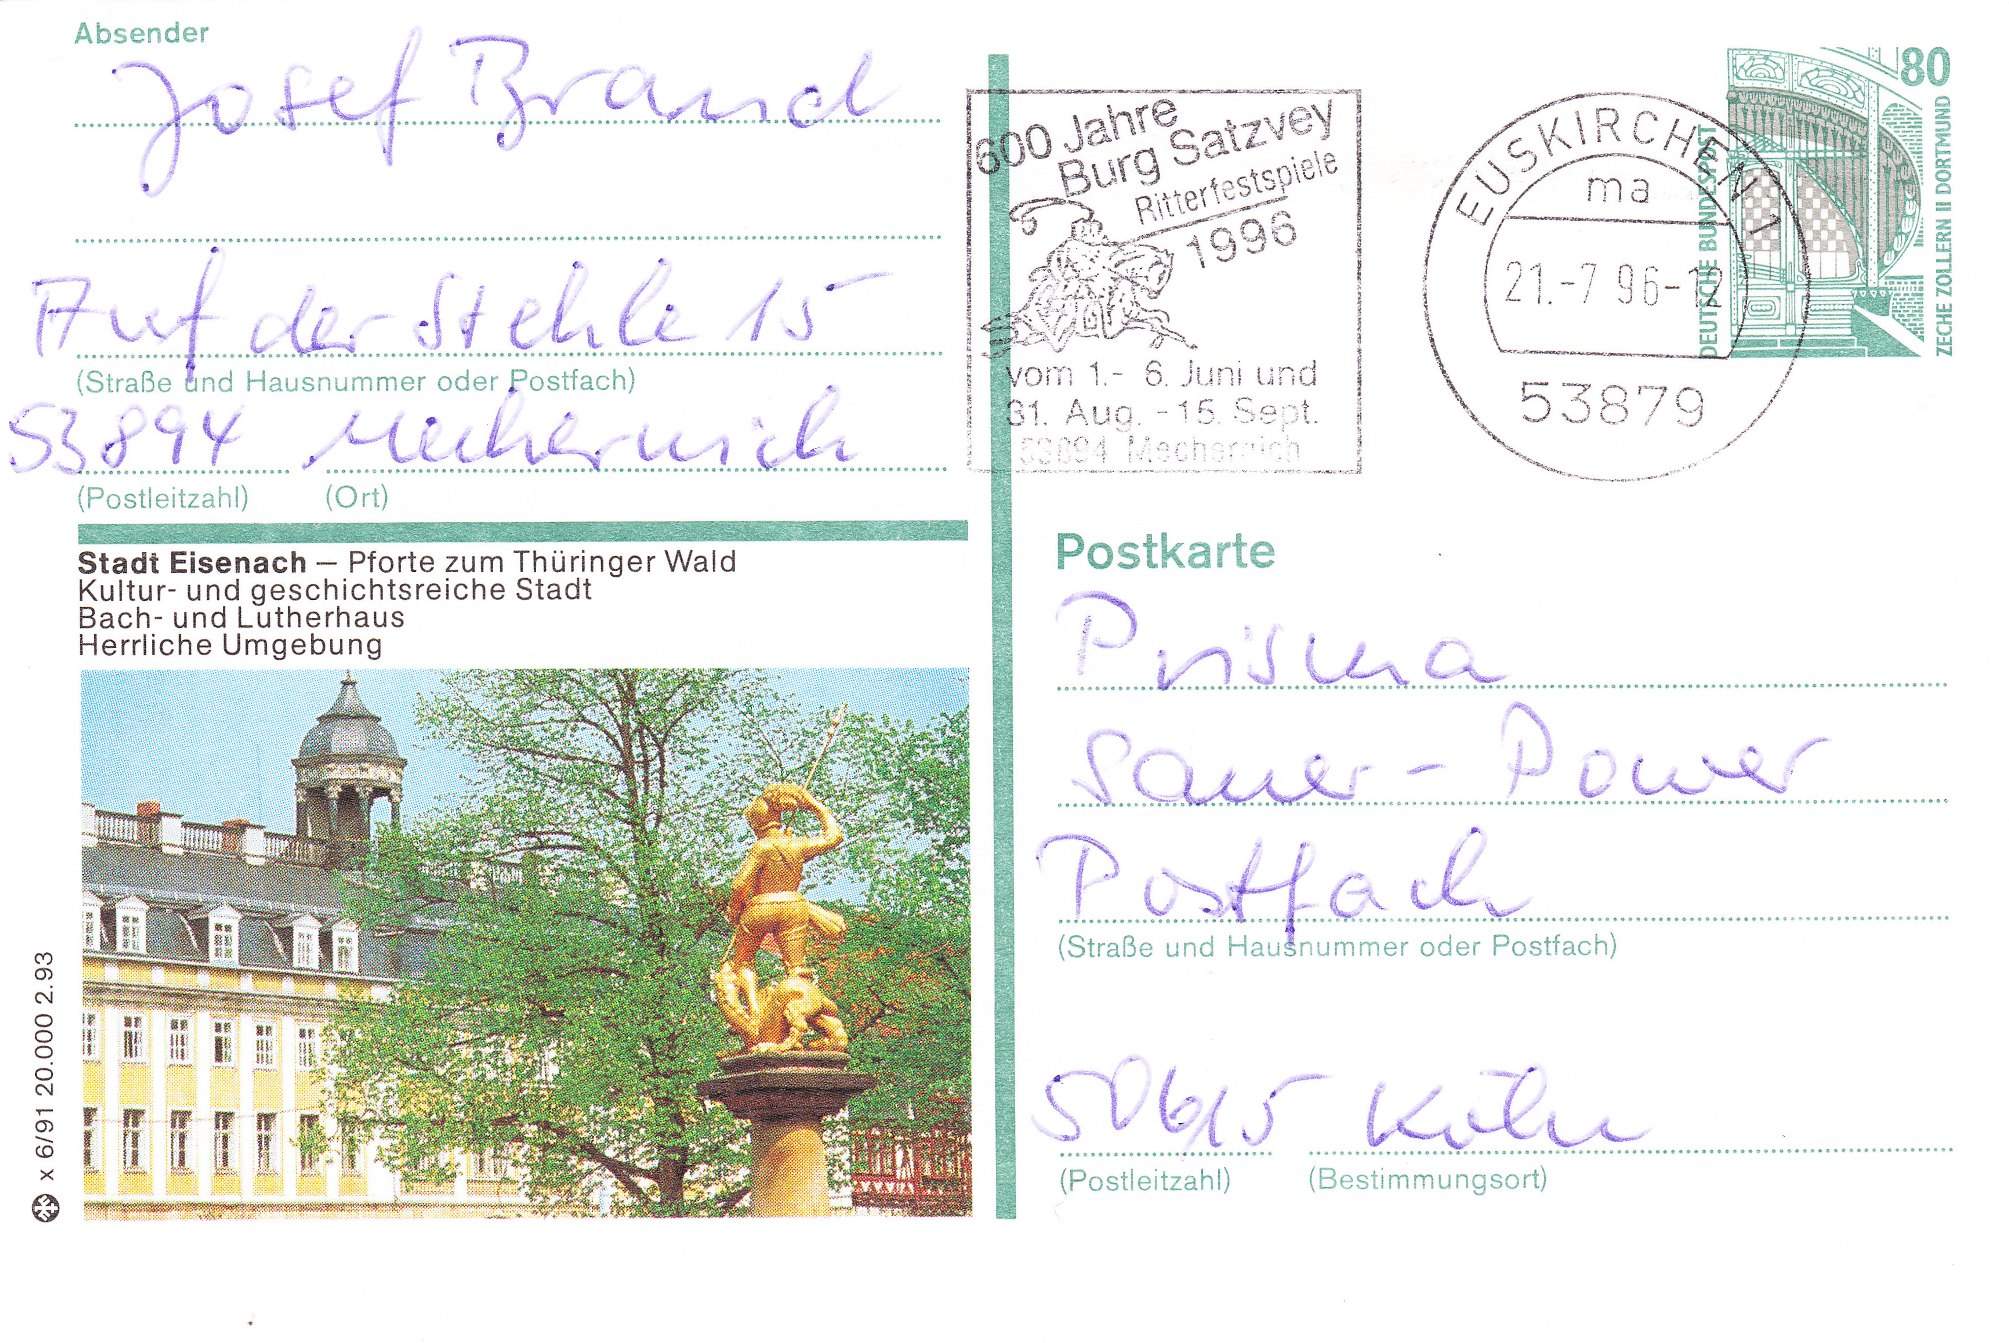 Absender
Josef Brand
Auf der Stehle 15
(Straße und Hausnummer oder Postfach)
53894 Mechernich
(Postleitzahl) (Ort)
Stadt Eisenach – Pforte zum Thüringer Wald
Kultur- und geschichtsreiche Stadt
Bach- und Lutherhaus
Herrliche Umgebung
x 6/91 20.000 2.93
600 Jahre
Burg Satzvey
Ritterfestspiele
1996
vom 1.- 6. Juni und
31. Aug. - 15. Sept.
53894 Mechernich
EUSKIRCHEN 1
ma
21.-7 96-12
53879
80
DEUTSCHE BUNDESPOST
ZECHE ZOLLERN II DORTMUND
Postkarte
Prisma
Sauer-Power
Postfach
(Straße und Hausnummer oder Postfach)
50615 Köln
(Postleitzahl) (Bestimmungsort)